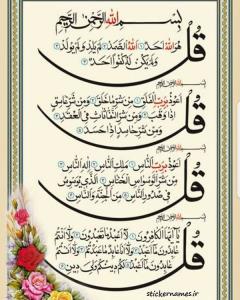 بِسْمِ اللهِ الرَّحْمٰنِ الرَّحِيْمِ
قُلْ هُوَ اللهُ اَحَدٌ ۝ اَللهُ الصَّمَدُ ۝ لَمْ يَلِدْ وَلَمْ يُولَدْ ۝
وَلَمْ يَكُنْ لَهُ كُفُوًا اَحَدٌ ۝
بِسْمِ اللهِ الرَّحْمٰنِ الرَّحِيْمِ
قُلْ اَعُوذُ بِرَبِّ الْفَلَقِ ۝ مِنْ شَرِّ مَا خَلَقَ ۝ وَمِنْ شَرِّ غَاسِقٍ
اِذَا وَقَبَ ۝ وَمِنْ شَرِّ النَّفَّاثَاتِ فِي الْعُقَدِ ۝
وَمِنْ شَرِّ حَاسِدٍ اِذَا حَسَدَ ۝
بِسْمِ اللهِ الرَّحْمٰنِ الرَّحِيْمِ
قُلْ اَعُوذُ بِرَبِّ النَّاسِ ۝ مَلِكِ النَّاسِ ۝ اِلٰهِ النَّاسِ ۝
مِنْ شَرِّ الْوَسْوَاسِ الْخَنَّاسِ ۝ الَّذِي يُوَسْوِسُ
فِي صُدُورِ النَّاسِ ۝ مِنَ الْجِنَّةِ وَالنَّاسِ ۝
بِسْمِ اللهِ الرَّحْمٰنِ الرَّحِيْمِ
قُلْ يَا اَيُّهَا الْكَافِرُونَ ۝ لَا اَعْبُدُ مَا تَعْبُدُونَ ۝ وَلَا اَنْتُمْ
عَابِدُونَ مَا اَعْبُدُ ۝ وَلَا اَنَا عَابِدٌ مَا عَبَدْتُمْ ۝ وَلَا اَنْتُمْ
عَابِدُونَ مَا اَعْبُدُ ۝ لَكُمْ دِينُكُمْ وَلِيَ دِينِ ۝
stickernames.ir